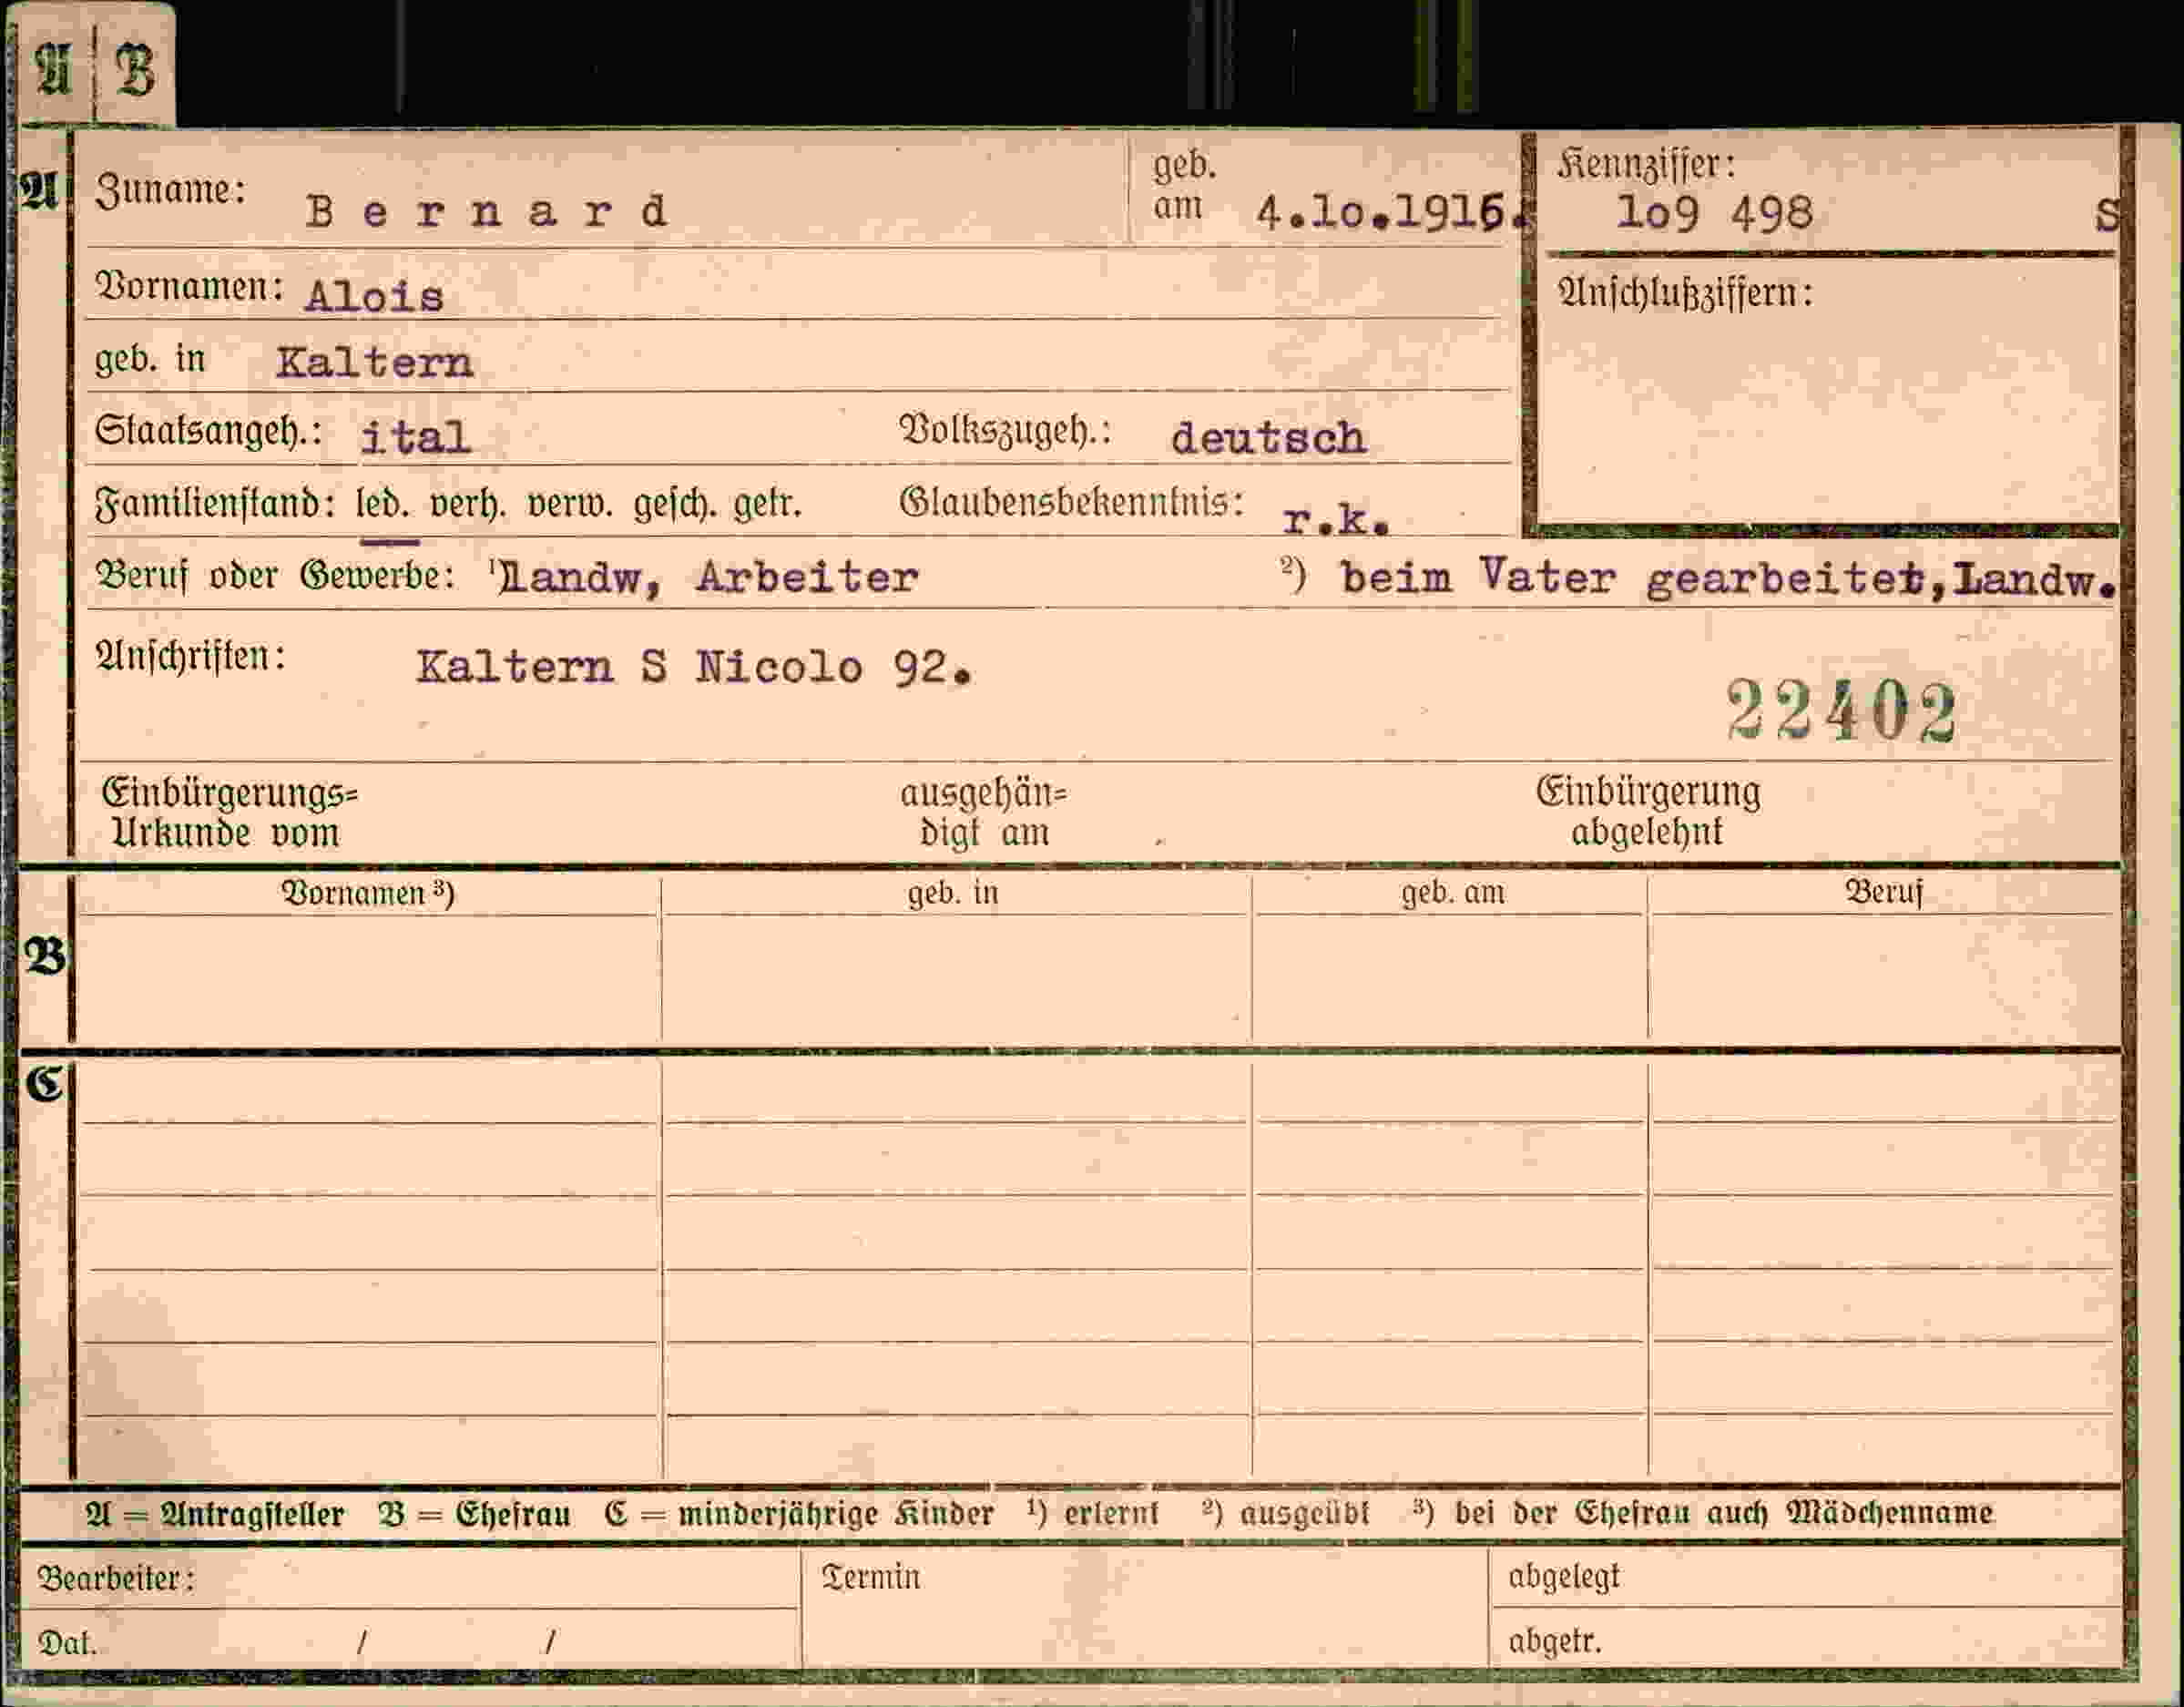 A B
A Zuname: Bernard geb. am 4.lo.1916. Kennziffer: lo9 498 S
Vornamen: Alois Anschlußziffern:
geb. in Kaltern
Staatsangeh.: ital Volkszugeh.: deutsch
Familienstand: led. verh. verw. gesch. getr. Glaubensbekenntnis: r.k.
Beruf oder Gewerbe: ¹) landw, Arbeiter ²) beim Vater gearbeitet,Landw.
Anschriften: Kaltern S Nicolo 92.
22402
Einbürgerungs= ausgehän= Einbürgerung
Urkunde vom digt am abgelehnt
Vornamen ³) geb. in geb. am Beruf
B
C
A = Antragsteller B = Ehefrau C = minderjährige Kinder ¹) erlernt ²) ausgeübt ³) bei der Ehefrau auch Mädchenname
Bearbeiter: Termin abgelegt
Dat. / / abgetr.